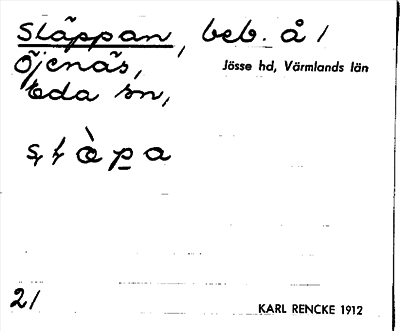 Släppan, beb. å 1
Öjenäs,
Jösse hd, Värmlands län
Eda sn,
21
KARL RENCKE 1912